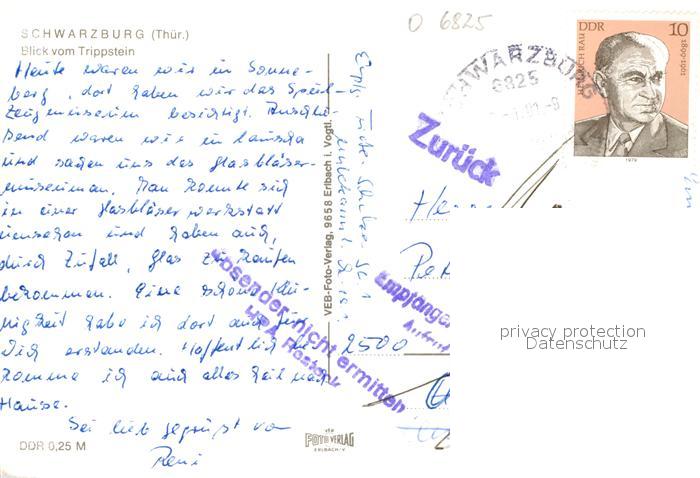 SCHWARZBURG (Thür.)
Blick vom Trippstein
Heute waren wir in Sonne-
berg, dort haben wir das Spiel-
zeugmuseum besichtigt. Anschlie-
ßend waren wir in Lauscha
und sahen uns das Glasbläser-
museum an. Man konnte sich
in einer Glasbläserwerkstatt
umsehen und haben auch,
durch Zufall, Glas zu kaufen
bekommen. Eine schöne Klei-
nigkeit habe ich dort auch für
Dich erstanden. Hoffentlich be-
komme ich auch alles heil nach
Hause.
Sei lieb gegrüßt von
Reni
DDR 0,25 M
VEB-Foto-Verlag, 9658 Erlbach i. Vogtl.
FOTO VERLAG
ERLBACH/V.
unbekannt
O 6825
SCHWARZBURG
6825
Zurück
DDR
10
HEINRICH RAU
1899-1961
1979
He
Pe
Empfänger
Absender nicht ermitteln
HPA Rostock
2500
privacy protection
Datenschutz